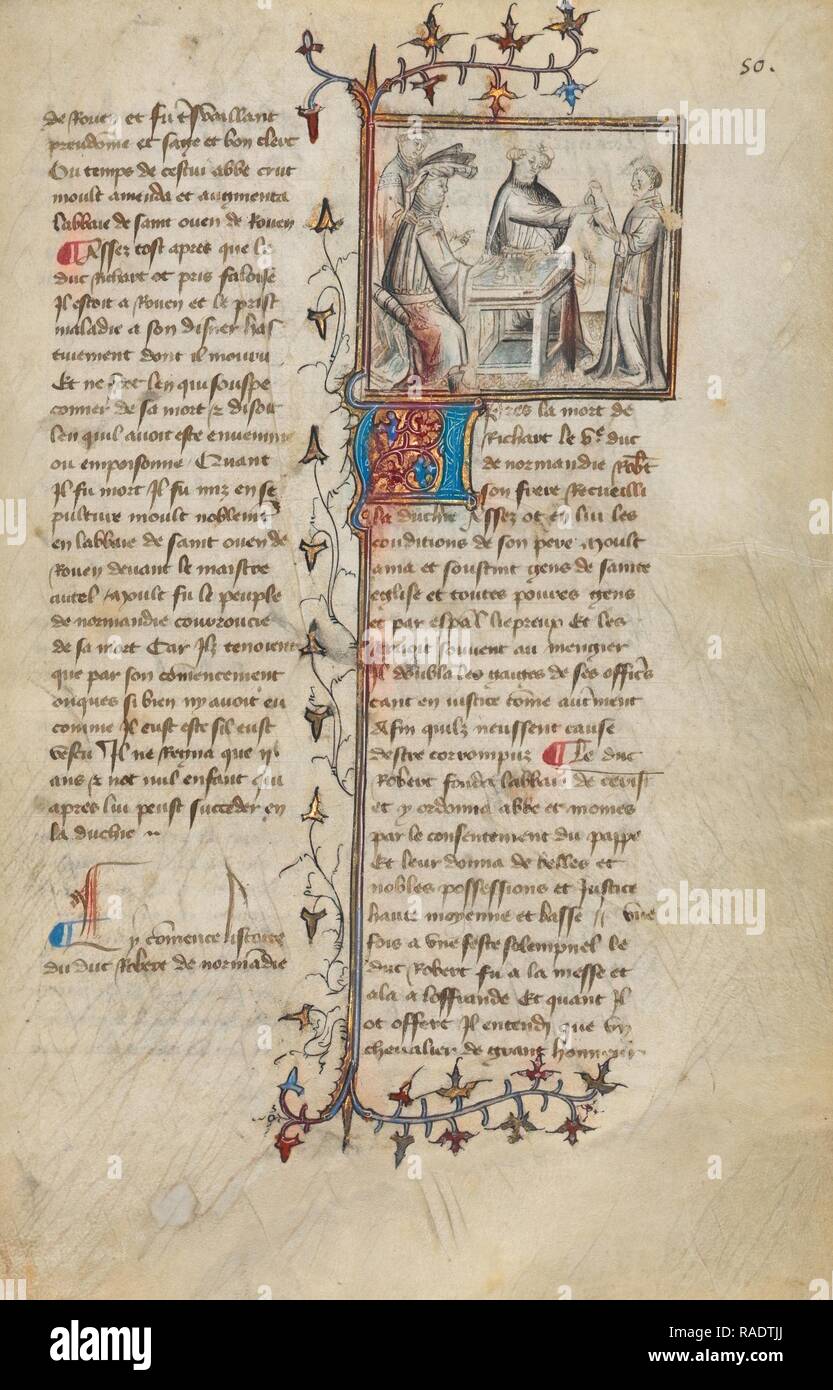 50.
de Rouen et fu tsvaillant
preudome et sage et bon clerc
Ou temps de cestui abbe crut
moult amenda et augmenta
labbaie de saint ouen de Rouen
Assez tost apres que le
duc Richart ot pris faloise
Il estoit a Rouen et le prist
maladie a son disner has
tivement dont il mouru
Et ne scet len qui souspe
conner de sa mort & disoit
len quil avoit este envenime
ou empoisonne Quant
Il fu mort Il fu mis en se
pulture moult noblemt
en labbaie de saint ouen de
Rouen devant le maistre
autel Moult fu le peuple
de normandie courroucie
de sa mort Car Ilz tenoient
que par son comencement
onques si bien ny avoit eu
comme Il eust este sil eust
vescu Il ne Regna que ii
ans & not nul enfant qui
apres lui peust succeder en
la duchie
Cy comence listoire
du duc Robert de normadie
Apres la mort de
Richart le duc
de normandie Robt
son frere Recueilli
la duchie Assez ot en lui les
conditions de son pere Moult
ama et soustint gens de sainte
eglise et toutes povres gens
et par espal liepreux Et les
servoit souvent au mengier
Il doubla les gaiges de ses officrs
tant en iustice come autrement
Afin quilz neussent cause
destre corrompuz Le duc
Robert fonda labbaie de
et y ordonna abbe et moines
par le consentement du pappe
Et leur donna de belles et
nobles possessions et Justice
haute moyenne et basse vne
fois a vne feste solempnel le
duc Robert fu a la messe et
ala a loffrande Et quant Il
ot offert Il entendi que vn
chevalier de grant honneur
alamy
Image ID: RADTJJ
www.alamy.com